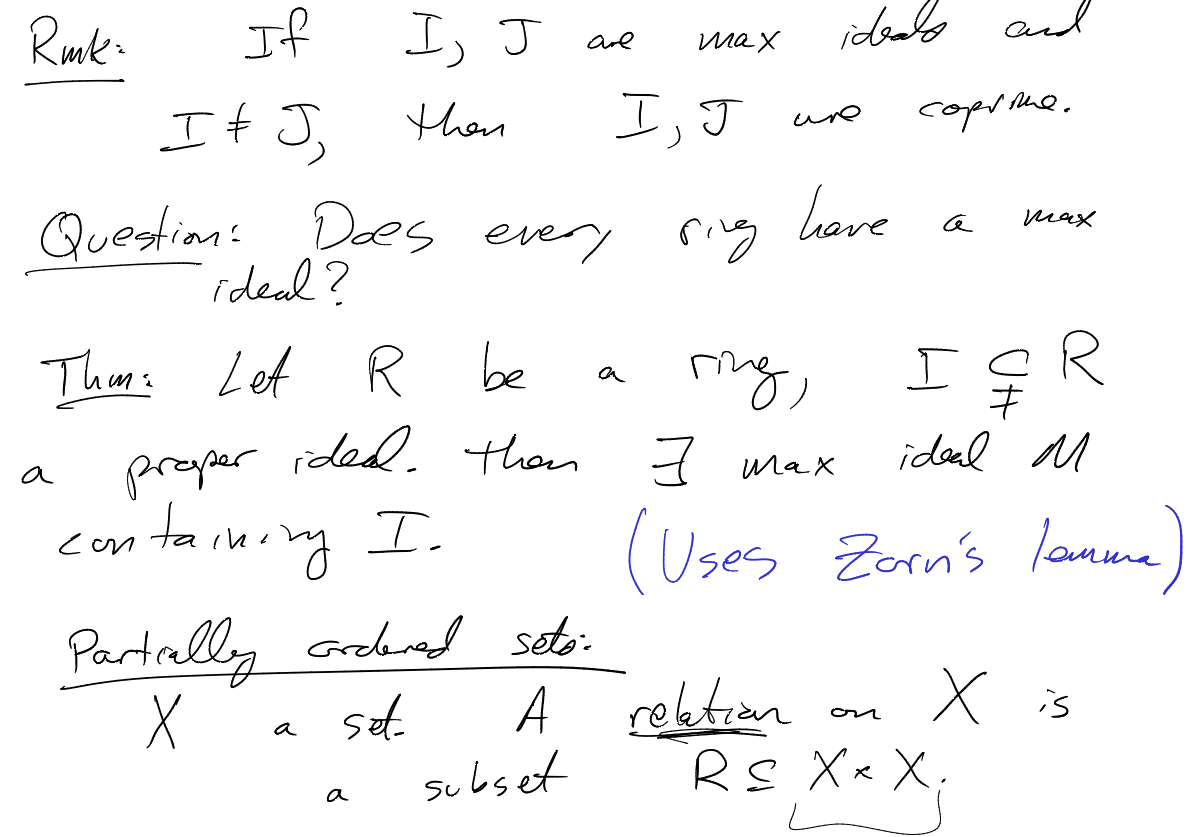 Rmk: If I, J are max ideals and
I ≠ J, then I, J are coprime.
Question: Does every ring have a max
ideal?
Thm: Let R be a ring, I ⊊ R
a proper ideal. then ∃ max ideal M
containing I. (Uses Zorn's lemma)
Partially ordered sets:
X a set. A relation on X is
a subset R ⊆ X × X.